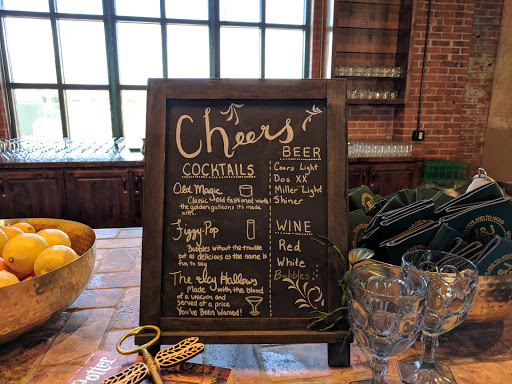 Cheers
COCKTAILS
Old Magic
Classic old fashioned worth
the golden galleons it's made
with.
Figgy-Pop
Bubbles without the trouble
just as delicious as the name is
fun to say
The Icy Hallows
Made with the blood
of a unicorn and
served at a price
You've Been Warned!
BEER
Coors Light
Dos XX
Miller Light
Shiner
WINE
Red
White
Bubbles
Potter